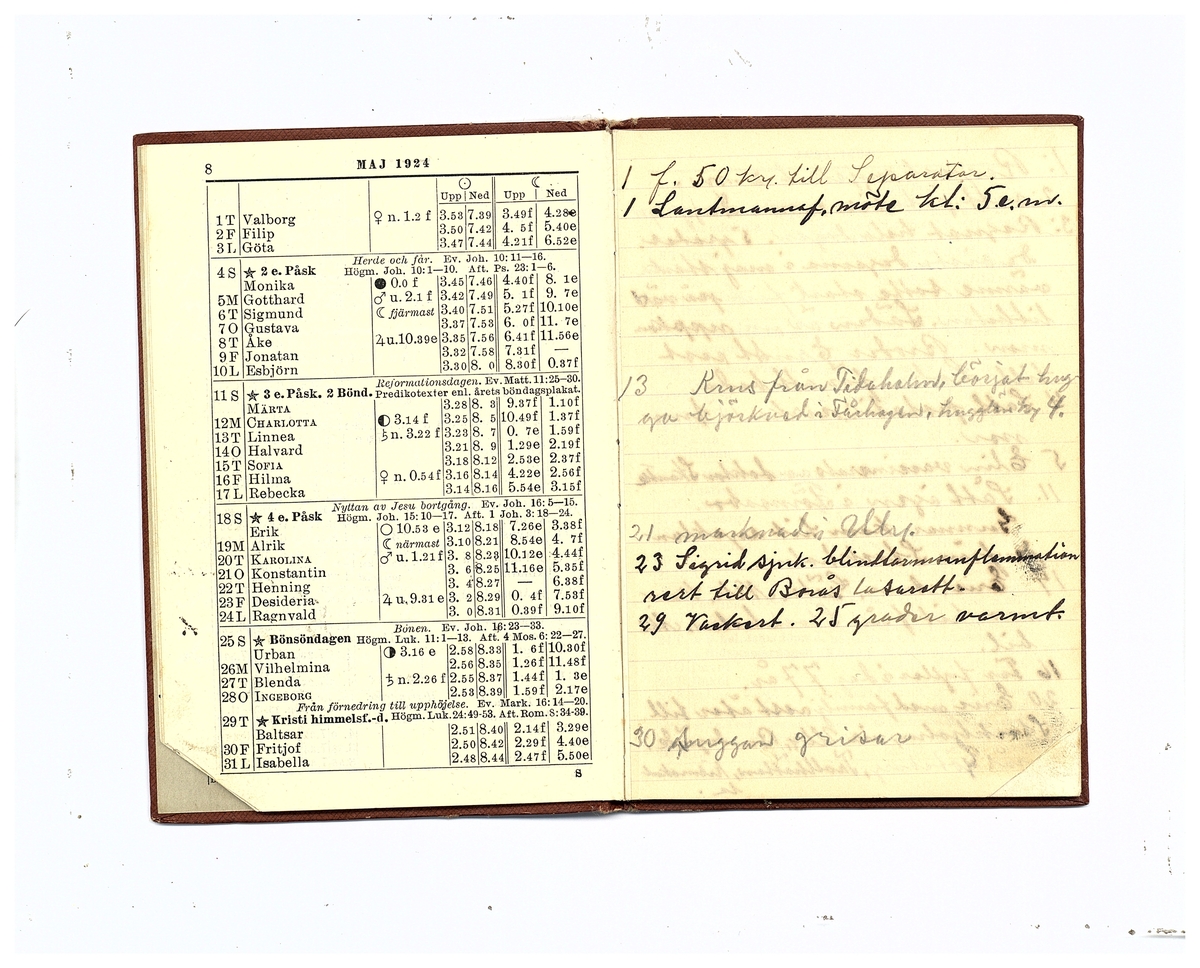 8 MAJ 1924
☉ ☾
Upp Ned Upp Ned
1 T Valborg ♀ n. 1.2 f 3.53 7.39 3.49f 4.28e
2 F Filip 3.50 7.42 4. 5f 5.40e
3 L Göta 3.47 7.44 4.21f 6.52e
Herde och får. Ev. Joh. 10: 11—16.
4 S ★ 2 e. Påsk Högm. Joh. 10: 1—10. Aft. Ps. 23: 1—6.
Monika ● 0.0 f 3.45 7.46 4.40f 8. 1e
5 M Gotthard ♂ u. 2.1 f 3.42 7.49 5. 1f 9. 7e
6 T Sigmund ☾ fjärmast 3.40 7.51 5.27f 10.10e
7 O Gustava 3.37 7.53 6. 0f 11. 7e
8 T Åke ♃ u. 10.39e 3.35 7.56 6.41f 11.56e
9 F Jonatan 3.32 7.58 7.31f —
10 L Esbjörn 3.30 8. 0 8.30f 0.37f
Reformationsdagen. Ev. Matt. 11: 25—30.
11 S ★ 3 e. Påsk. 2 Bönd. Predikotexter enl. årets böndagsplakat.
MÄRTA 3.28 8. 3 9.37f 1.10f
12 M CHARLOTTA ◐ 3.14 f 3.25 8. 5 10.49f 1.37f
13 T Linnea ♄ n. 3.22 f 3.23 8. 7 0. 7e 1.59f
14 O Halvard 3.21 8. 9 1.29e 2.19f
15 T SOFIA 3.18 8.12 2.53e 2.37f
16 F Hilma ♀ n. 0.54f 3.16 8.14 4.22e 2.56f
17 L Rebecka 3.14 8.16 5.54e 3.15f
Nyttan av Jesu bortgång. Ev. Joh. 16: 5—15.
18 S ★ 4 e. Påsk Högm. Joh. 15: 10—17. Aft. 1 Joh. 3: 18—24.
Erik ○ 10.53 e 3.12 8.18 7.26e 3.38f
19 M Alrik ☾ närmast 3.10 8.21 8.54e 4. 7f
20 T KAROLINA ♂ u. 1.21 f 3. 8 8.23 10.12e 4.44f
21 O Konstantin 3. 6 8.25 11.16e 5.35f
22 T Henning 3. 4 8.27 — 6.38f
23 F Desideria ♃ u. 9.31 e 3. 2 8.29 0. 4f 7.53f
24 L Ragnvald 3. 0 8.31 0.39f 9.10f
Bönen. Ev. Joh. 16: 23—33.
25 S ★ Bönsöndagen Högm. Luk. 11: 1—13. Aft. 4 Mos. 6: 22—27.
Urban ◑ 3.16 e 2.58 8.33 1. 6f 10.30f
26 M Vilhelmina 2.56 8.35 1.26f 11.48f
27 T Blenda ♄ n. 2.26 f 2.55 8.37 1.44f 1. 3e
28 O INGEBORG 2.53 8.39 1.59f 2.17e
Från förnedring till upphöjelse. Ev. Mark. 16: 14—20.
29 T ★ Kristi himmelsf.-d. Högm. Luk. 24: 49-53. Aft. Rom. 8: 34-39.
Baltsar 2.51 8.40 2.14f 3.29e
30 F Fritjof 2.50 8.42 2.29f 4.40e
31 L Isabella 2.48 8.44 2.47f 5.50e
8
1 f. 50 kr. till Separator.
1 Lantmannaf. möte kl: 5 e. m.
13 från Tidaholm, börjat hug
ga björkved i 4.
21 marknad i Ulrp.
23 Sigrid sjuk. blindtarmsinflammation
rest till Borås lasarett.
29 Vackert. 25 grader varmt.
30 Suggan grisar